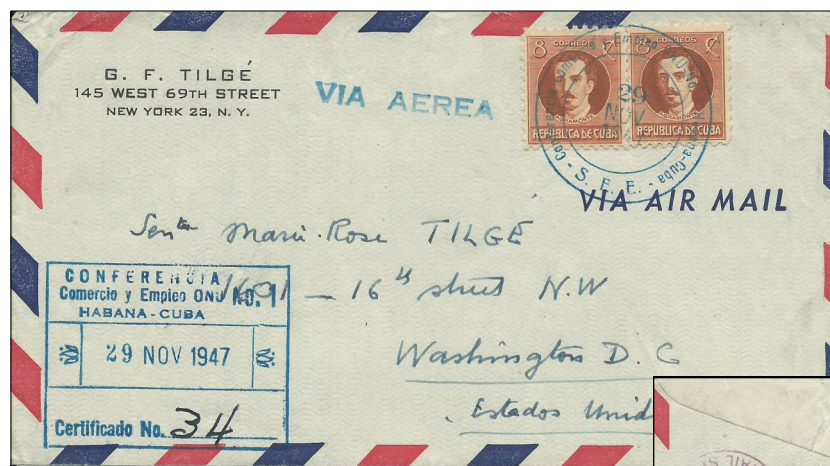 G. F. TILGÉ
145 WEST 69TH STREET
NEW YORK 23, N. Y.
VIA AEREA
8 CORREOS ₵
8 CORREOS ₵
REPUBLICA DE CUBA
REPUBLICA DE CUBA
29
NOV
S. F. E.
VIA AIR MAIL
Marie-Rose TILGÉ
1601 — 16th street N.W
Washington D.C
Estados Unid
CONFERENCIA
Comercio y Empleo ONU NO. 1
HABANA-CUBA
29 NOV 1947
Certificado No. 34